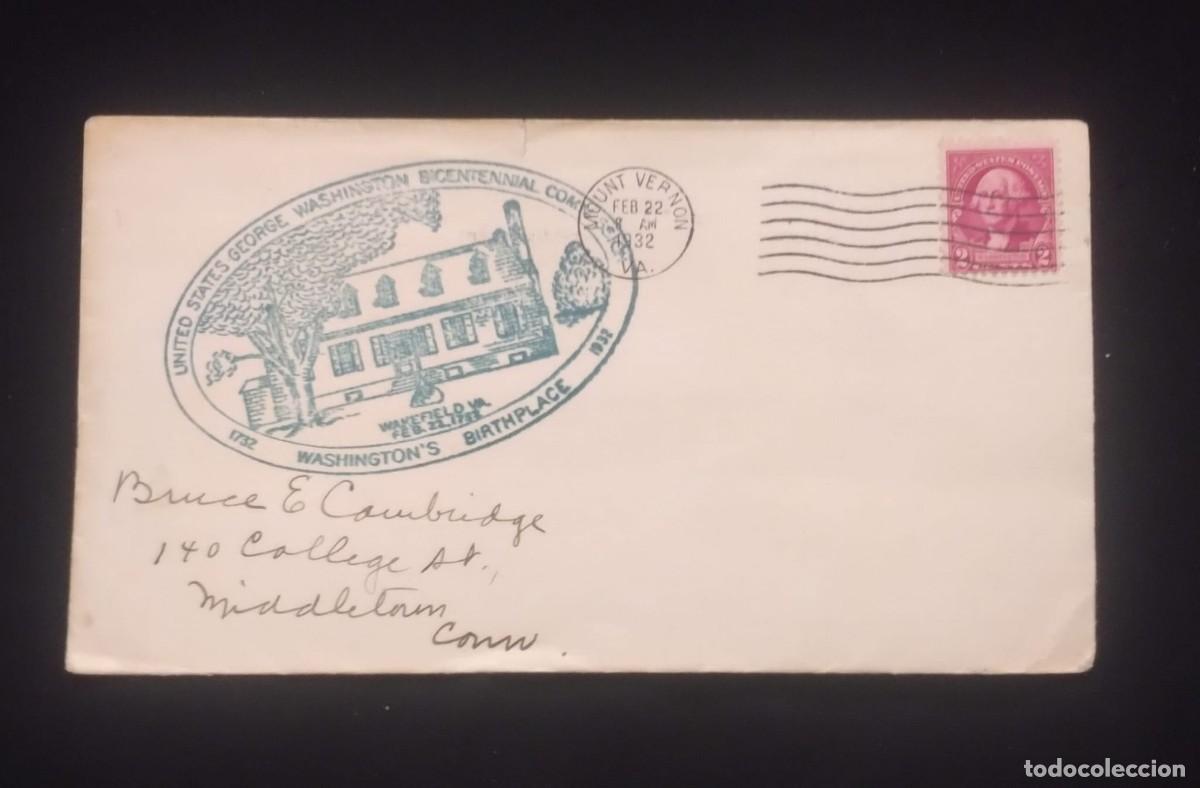 UNITED STATES GEORGE WASHINGTON BICENTENNIAL
WAKEFIELD, VA.
FEB. 22, 1732
1732 WASHINGTON'S BIRTHPLACE 1932
MOUNT VERNON
FEB 22
8 AM
1932
VA.
UNITED STATES POSTAGE
2 2
Bruce E Cambridge
140 College St.,
Middletown
Conn.
todocoleccion